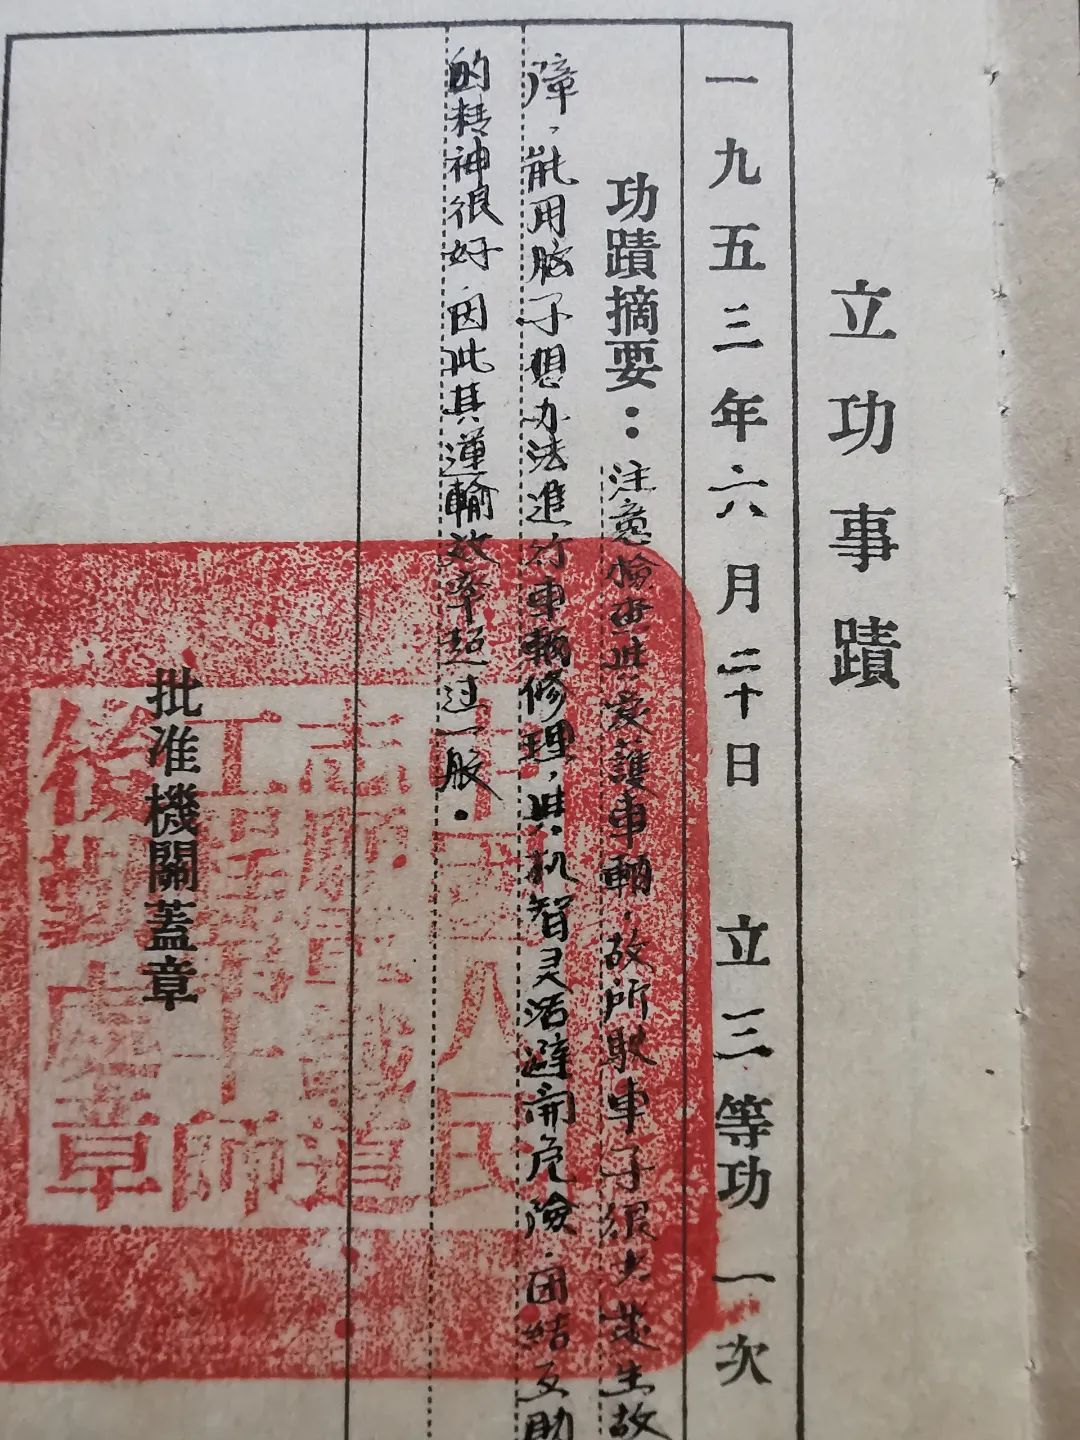 立功事蹟
一九五三年六月二十日 立三等功一次
功蹟摘要：注意檢查與爱護車輛，故所駛車子很少發生故
障，能用脑子想办法進行車輛修理，與机智灵活避開危險，团結互助
的精神很好，因此其運輸效率超过一般。
批准機關蓋章
中國人民
志願軍鐵道
工程第十師
後勤處章